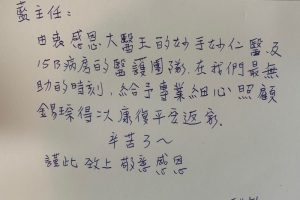 藍主任：
由衷感恩大醫王的妙手妙仁醫及
15B病房的醫護團隊，在我們最無
助的時刻，給予專業細心照顧
錫琮得以康復平安返家．
辛苦了～
謹此 致上 敬意 感恩